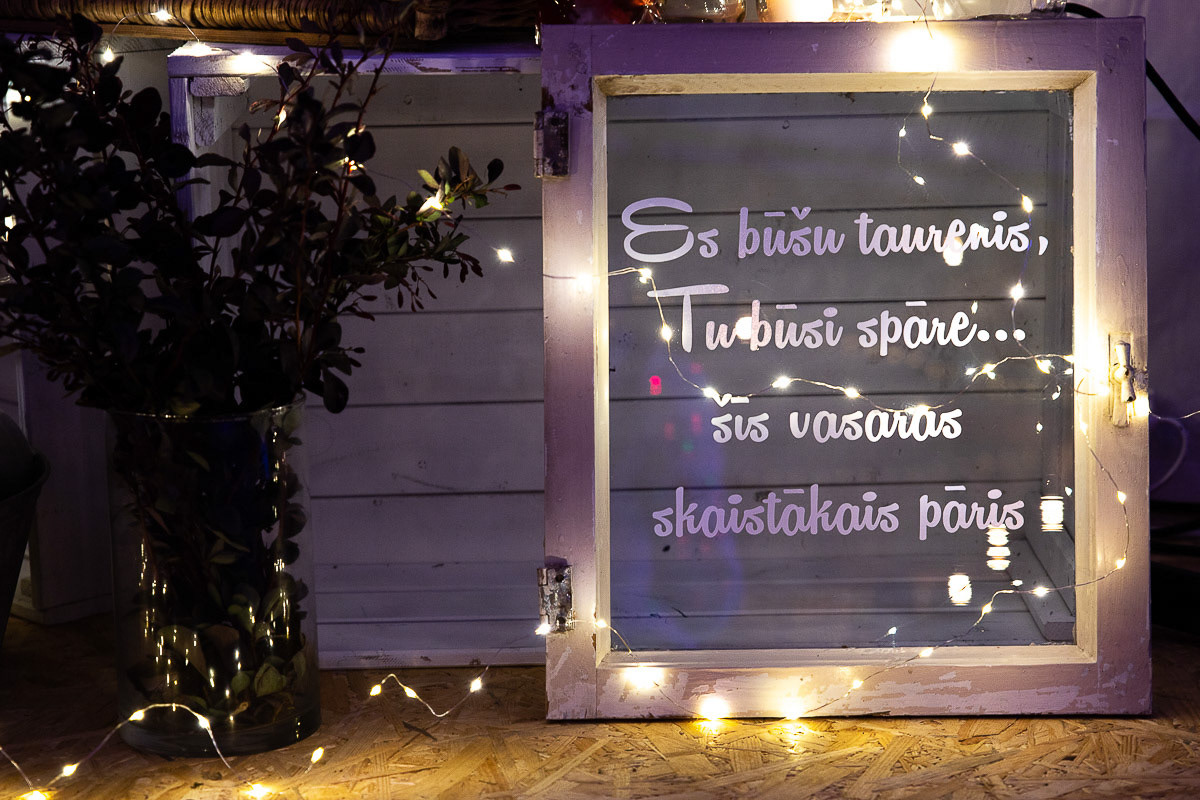 Es būšu taurenis,
Tu būsi spāre...
šīs vasaras
skaistākais pāris